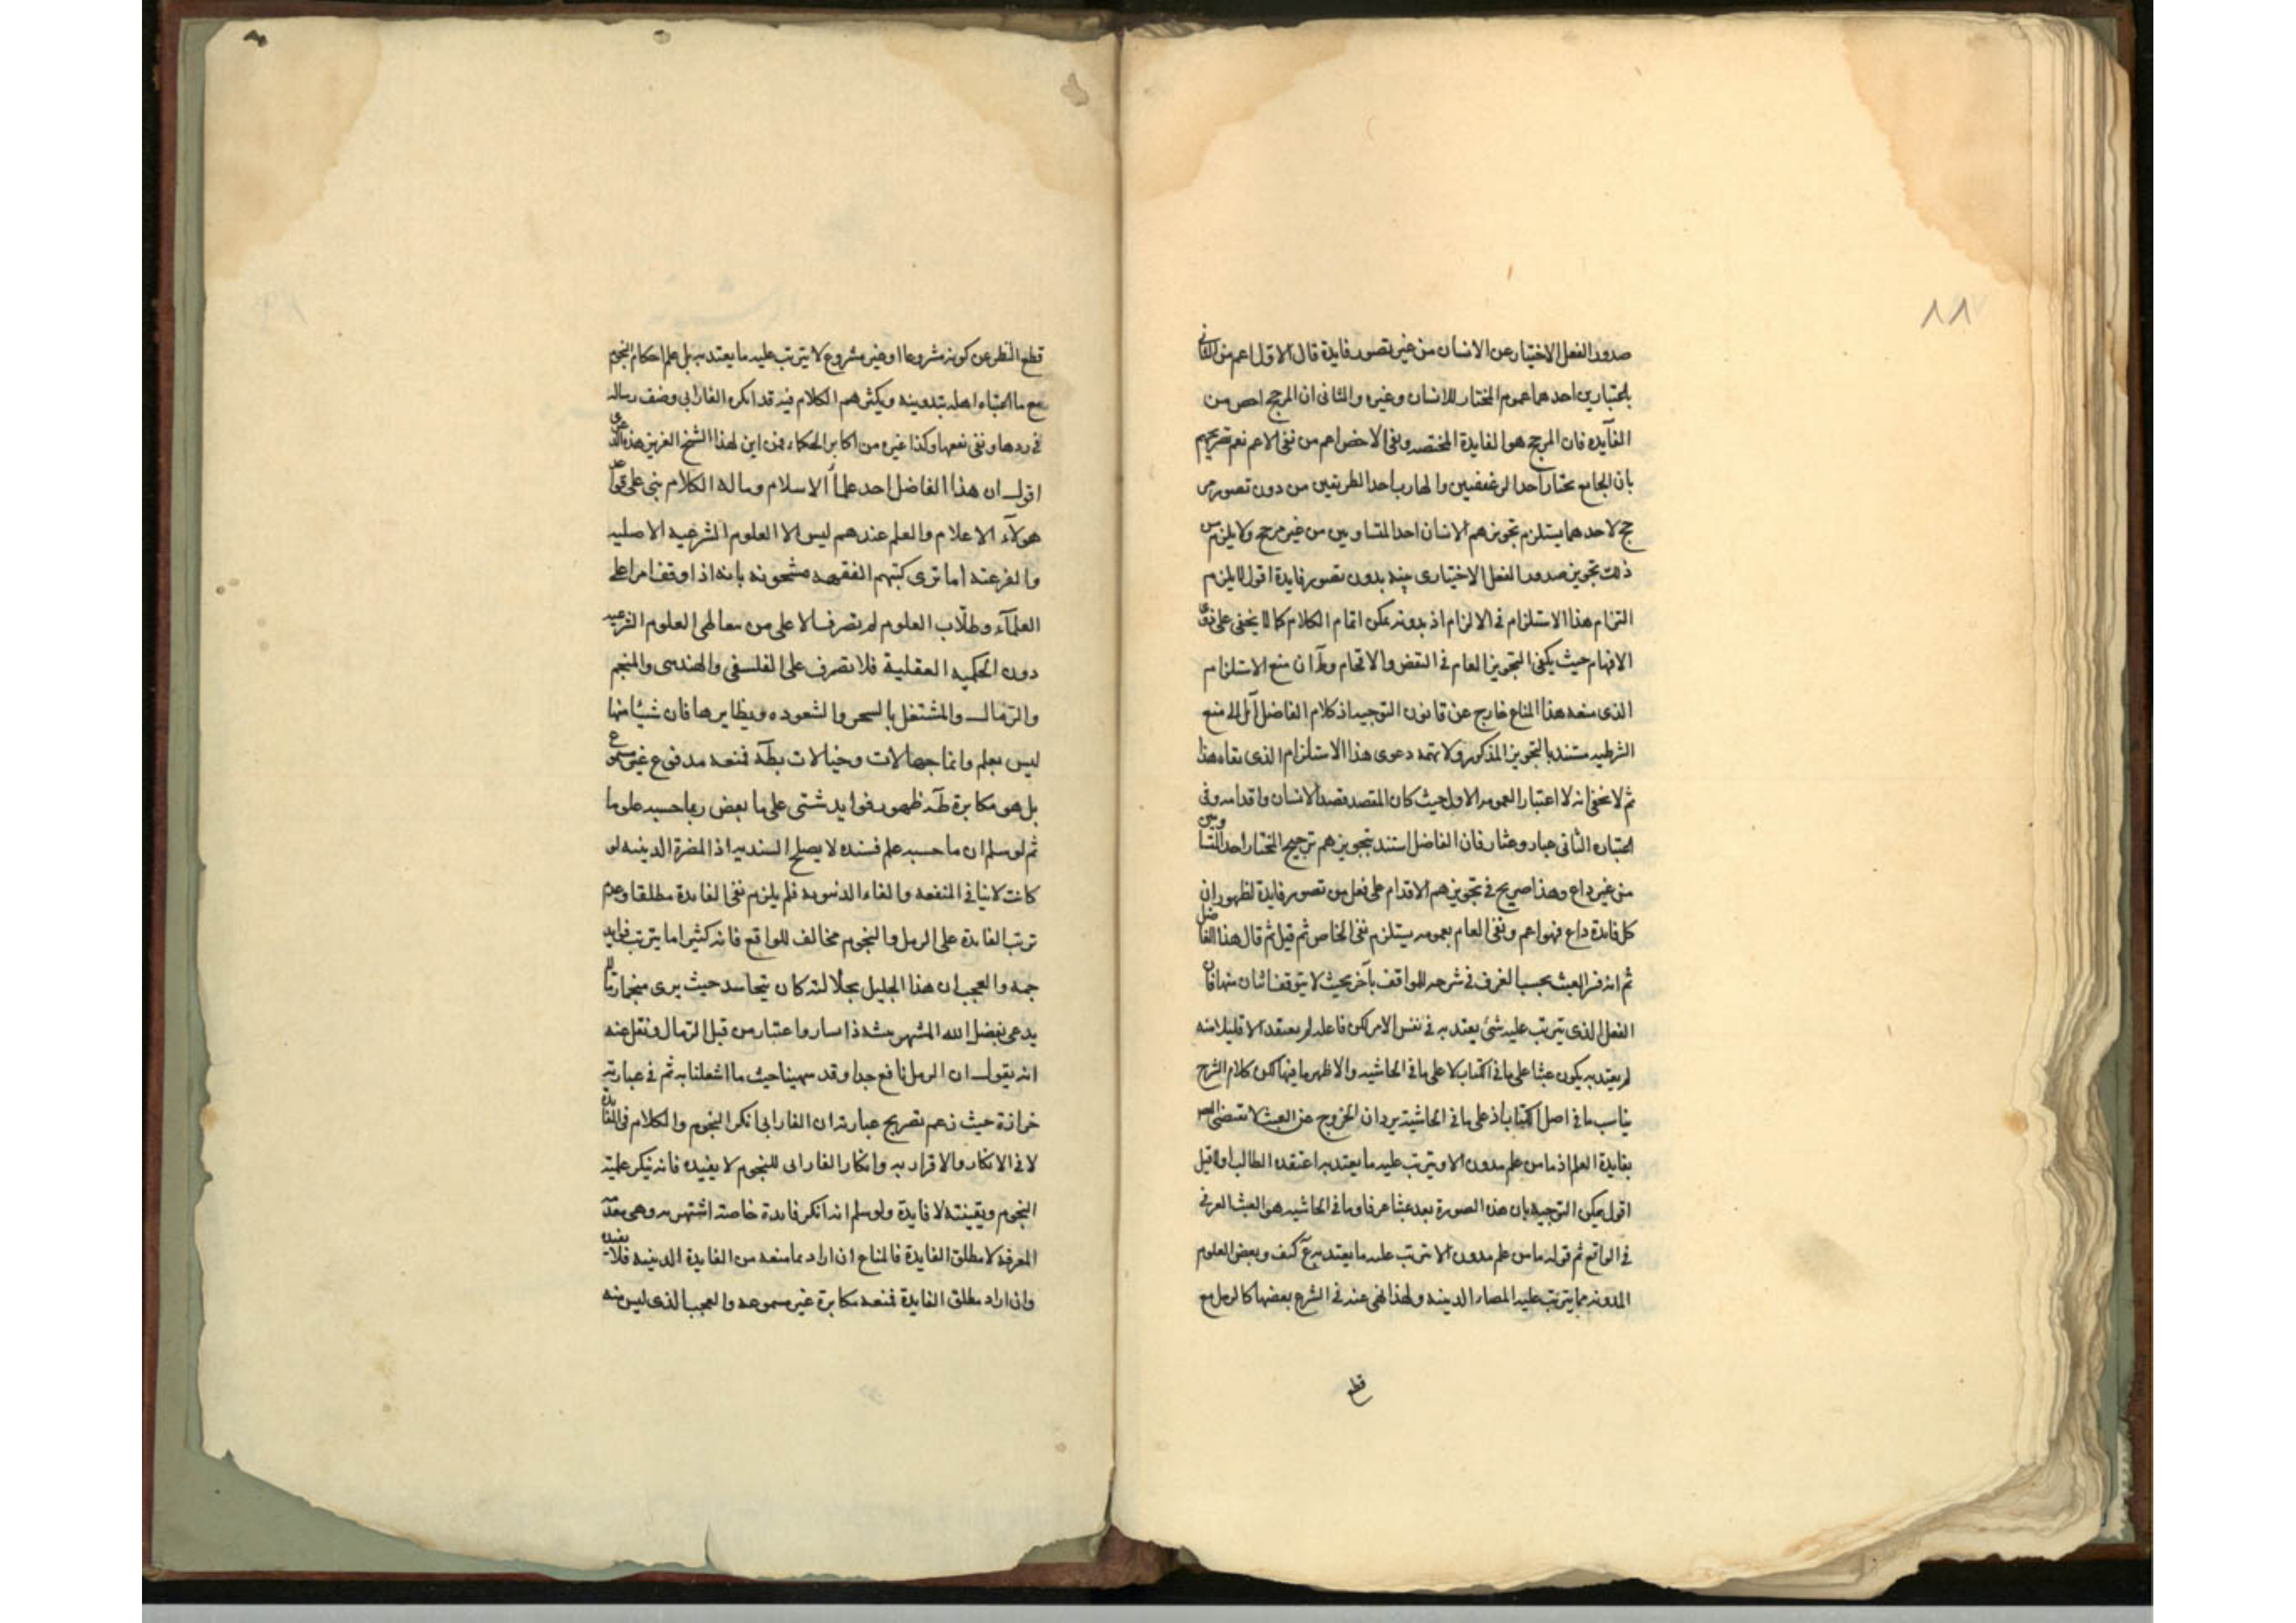 ٨٨
صدور الفعل الاختيار عن الانسان من غير تصور فايدة قال الاول اعم من الثانى
باعتبارين احدهما عموم المختار للانسان وغيره والثانى ان المرجح اخص من
الفآيده فان المرجح هو الفايدة المختصه ونفى الاخص اعم من نفى الاعم نعم تصريحهم
بان الجايع يختار احد الرغيفين والهارب احد الطريقين من دون تصور مر
جح لاحدهما يستلزم تجويزهم الانسان احد المتساويين من غير مرجح ولا يلزم من
ذلك تجويز صدور الفعل الاختيارى عنه بدون تصور فايدة اقول لا يلزم
التزام هذا الاستلزام فى الالزام اذ بدونه يمكن اتمام الكلام كما لا يخفى على ذوى
الافهام حيث يكفى التجويز العام فى النقض والاتمام وظ ان منع الاستلزام
الذى منعه هذا المناع خارج عن قانون التوجيه اذ كلام الفاضل آئل الى منع
الشرطيه مستندا بالتجويز المذكور ولا تهمه دعوى هذا الاستلزام الذى نفاه هذا
ثم لا يخفى انه لا اعتبار العموم الاول حيث كان المقصد قصد الانسان واقدامه وفى
اعتباره الثانى عبار وعثار فان الفاضل استند بتجويزهم ترجيح المختار احد المتساويين
من غير داع وهذا صريح فى تجويزهم الاقدام على فعل من تصور فايدة لظهور ان
كل فايدة داع فهو اعم ونفى العام بعمومه يستلزم نفى الخاص ثم قيل ثم قال هذا الفاضل
ثم انه فسر العبث بحسب العرف فى شرحه للمواقف بآخر بحيث لا يتوقف اثنان منها فان
الفعل الذى يترتب عليه شئ يعتد به فى نفس الامر لكن فاعله لم يعتقد الا قليلا منه
لم يعتد به يكون عبثا على ما فى الكتاب لا على ما فى الحاشيه والاظهر ما فيها لكن كلام الشرح
يناسب ما فى اصل الكتاب اذ على ما فى الحاشية يرد ان الخروج عن العبث لا تقتضى
بفايدة العلم اذ ما من علم مدون الا ويترتب عليه ما يعتد به اعتقده الطالب اولا قيل
اقول يمكن التوجيه بان هذه الصورة يعد عبثا عرفا وما فى الحاشيه هو العبث العرفى
فى الواقع ثم قوله ما من علم مدون الا يترتب عليه ما يعتد به ع كيف وبعض العلوم
المدونه مما يترتب عليه المضار الدينيه ولهذا نهى عنه فى الشرع بعضها كالرمل مع
قطع
قطع النظر عن كونه مشروعا او غير مشروع لا يترتب عليه ما يعتد به بل علم احكام النجوم
مع ما اعتناء اهله بتدوينه ويكثرهم الكلام فيه قد انكره الفارابى وصنف رساله
فى ردها ونفى نفعها وكذا غيره من اكابر الحكماء فمن اين لهذا الشيخ العزيز هذه الدعوى
اقول ان هذا الفاضل احد علماء الاسلام وماله الكلام بنى على قول
هولآء الاعلام والعلم عندهم ليس الا العلوم الشرعيه الاصليه
والفرعيه اما ترى كتبهم الفقهيه مشحونه بانه اذا وقف امرا على
العلمآء وطلّاب العلوم لم تصرف الا على من تعاطى العلوم الشرعيه
دون الحكميه العقلية فلا تصرف على الفلسفى والهندسى والمنجم
والرّمال والمشتغل بالسحر والشعوده ونظايرها فان شيئا منها
ليس بعلم وانما جهالات وخيالات بطآة فمنعه مدفوع غير مسموع
بل هو مكابرة ظـ ظهور فوايد شتى على ما بعض ربما حسبه علوما
ثم لو سلم ان ما حسبه علم فسنده لا يصلح السنديه اذ المضرة الدينيه لو
كانت لا ينافى المنفعه والفاء الدنيويه فلم يلزم نفى الفايدة مطلقا وعدم
ترتب الفايدة على الرمل والنجوم مخالف للواقع فانه كثيرا ما يترتب فوايد
جمه والعجب ان هذا الجليل بجلالته كان يتحاسد حيث يرى منجما رمالا
يدعى بفضل الله المشهر بشه ذا سار واعتبار من قبل الرمال ونقل عنه
انه يقول ان الرمل نافع جدا وقد سهينا حيث ما اشغلنا به ثم فى عبارته
خرازة حيث زعم تصريح عبارته ان الفارابى انكر النجوم والكلام فى الفايدة
لا فى الانكار والاقرار به وانكار الفارابى للنجوم لا يفيده فانه ينكر علمية
النجوم ويقينته لا فايدة ولو سلم انه انكر فايدة خاصة اشتهر به وهى تقدمة
المعرفة لا مطلق الفايدة فالمناع ان اراد بما منعه من الفايدة الدينيه فلا يفيده
وان اراد مطلق الفايدة فمنعه مكابرة غير مسموعه والعجب الذى ليس منه